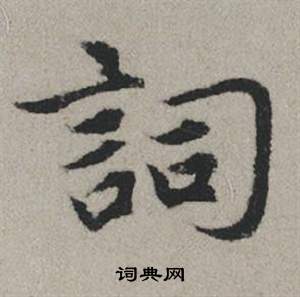 詞
词典网